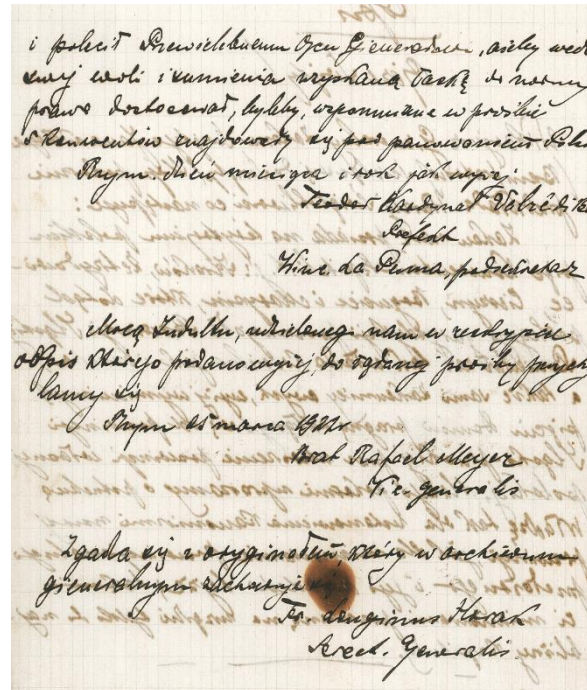 i polecił Przewielebnemu Ojcu Gienerałowi, ażeby wedł
swej woli i sumienia uzyskaną łaskę do normy
prawa dostosował, byleby, wspomniane w prośbie
5 Konwentów znajdowały się pod panowaniem Pols
Rzym. dzień miesiąca i rok jak wyżej
Teodor Kardynał
Prefekt
Winc. La Puma, podsekretarz
Mocą Indultu, udzielonego nam w reskrypcie
odpis którego podano wyżej, do żądanej prośby przych
lamy się
Rzym marca
Brat Rafael Meyer
Vic. generalis
Zgadza się z oryginałem, który w archiwum
gieneralnym zachowuje się
Fr. Longinus Horak
Secret. Generalis.